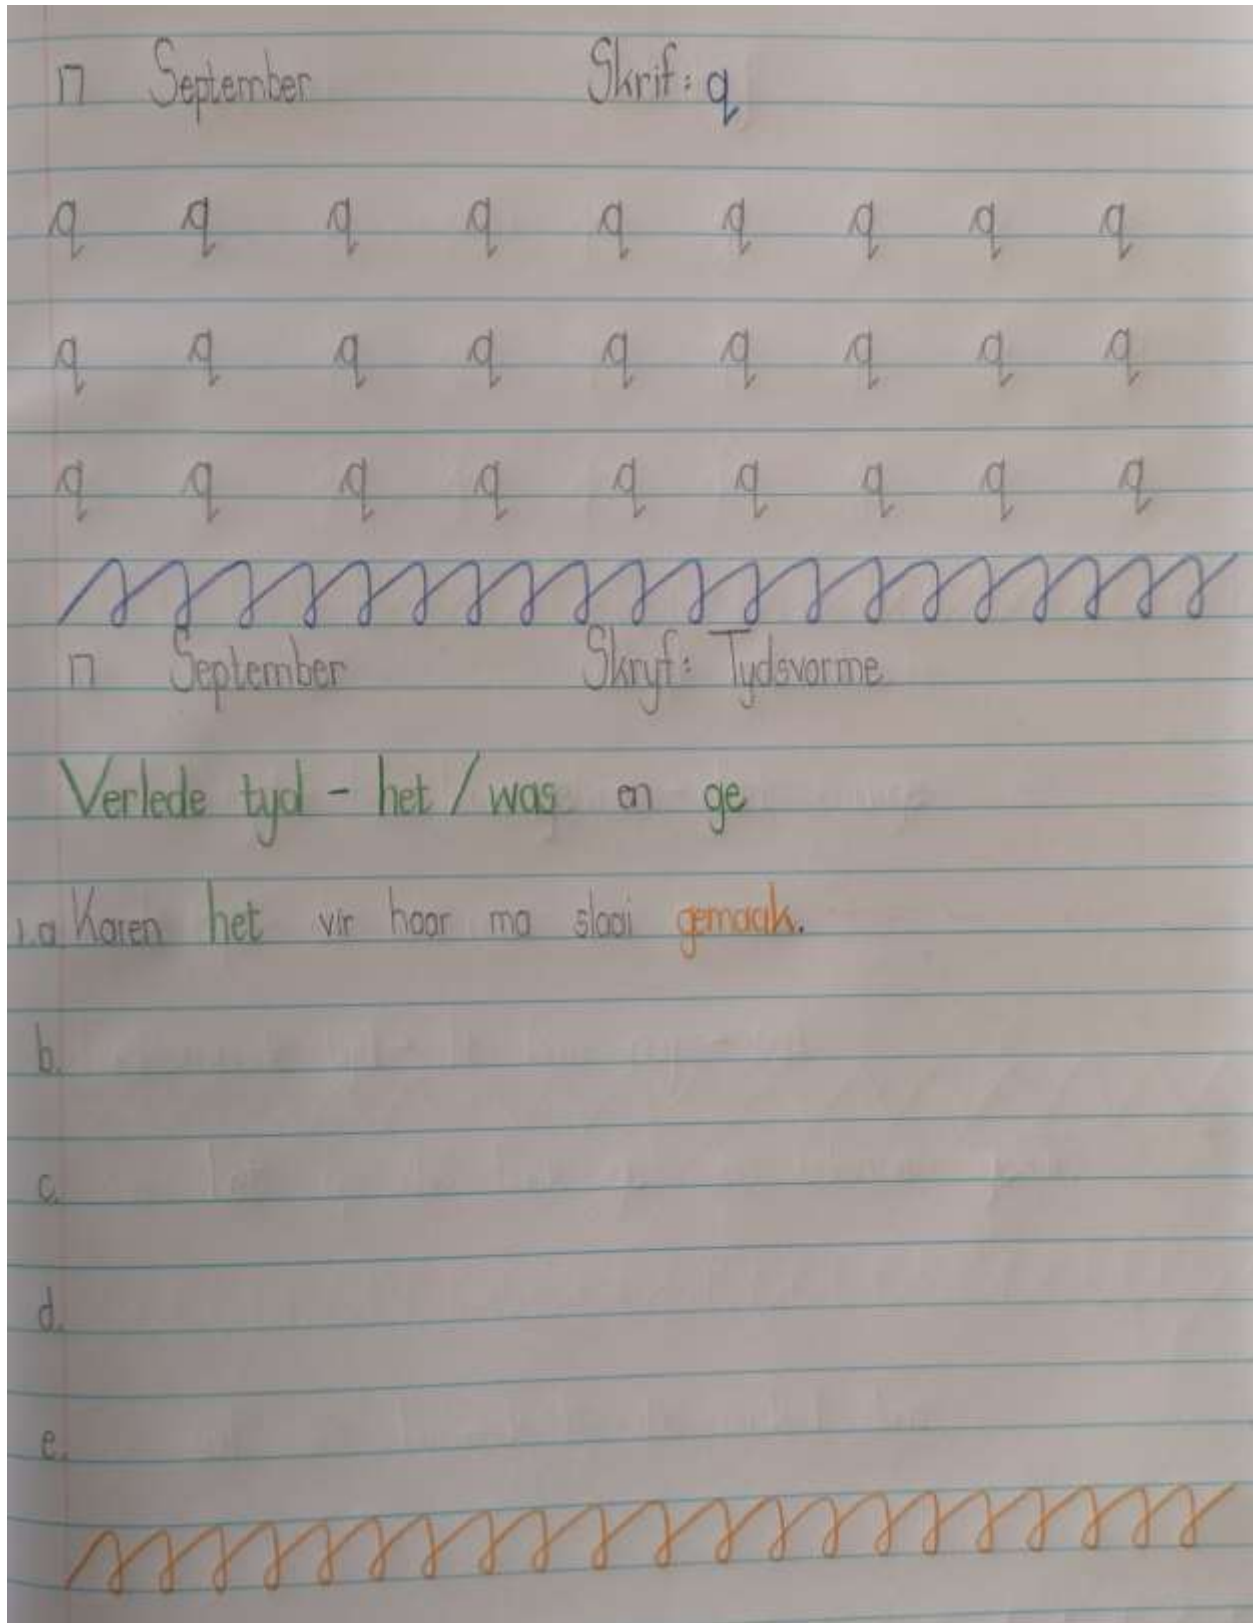 17 September Skrif: q
q q q q q q q q q
q q q q q q q q q
q q q q q q q q q
17 September Skryf: Tydsvorme
Verlede tyd - het / was en ge
1.a Karen het vir haar ma slaai gemaak.
b.
c.
d.
e.